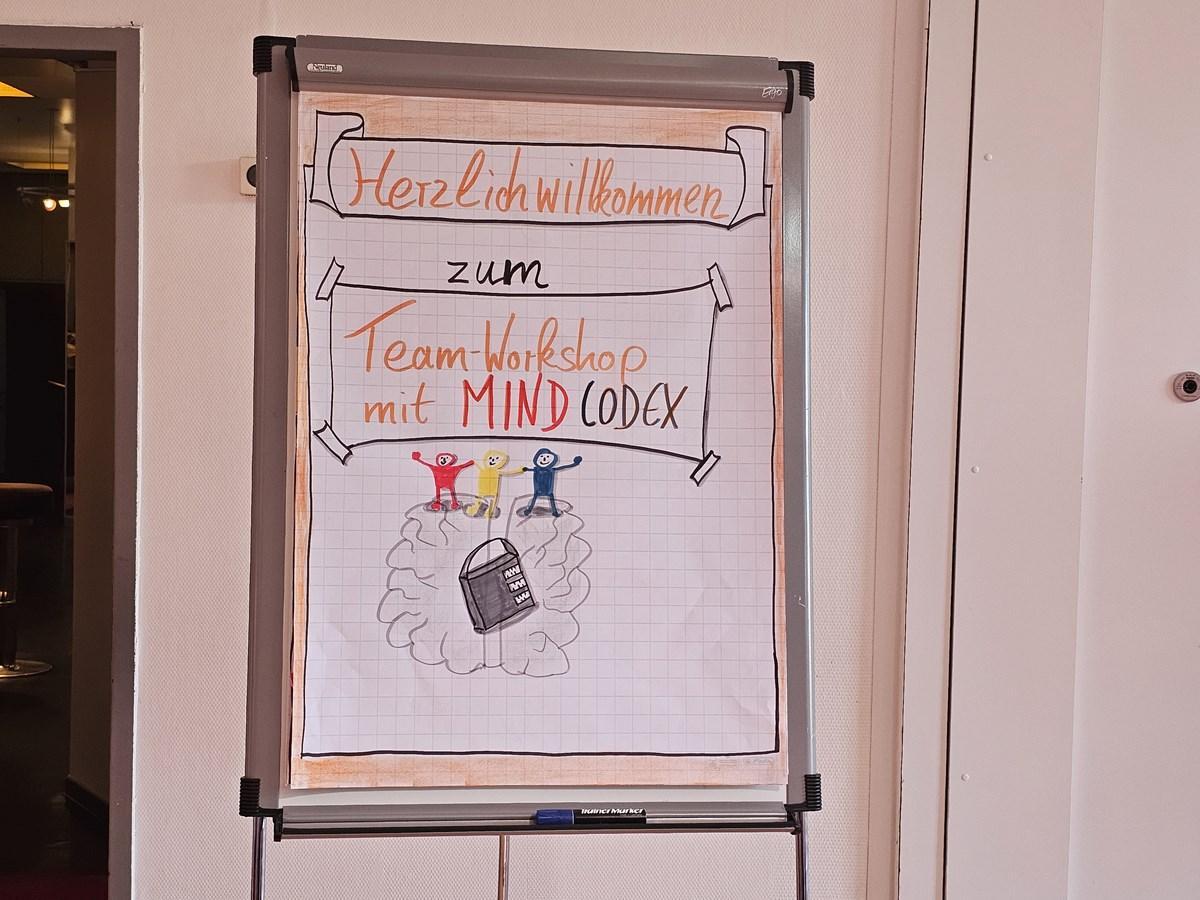 Neuland
Ergo
Herzlich willkommen
zum
Team-Workshop
mit MIND CODEX
TrainerMarker